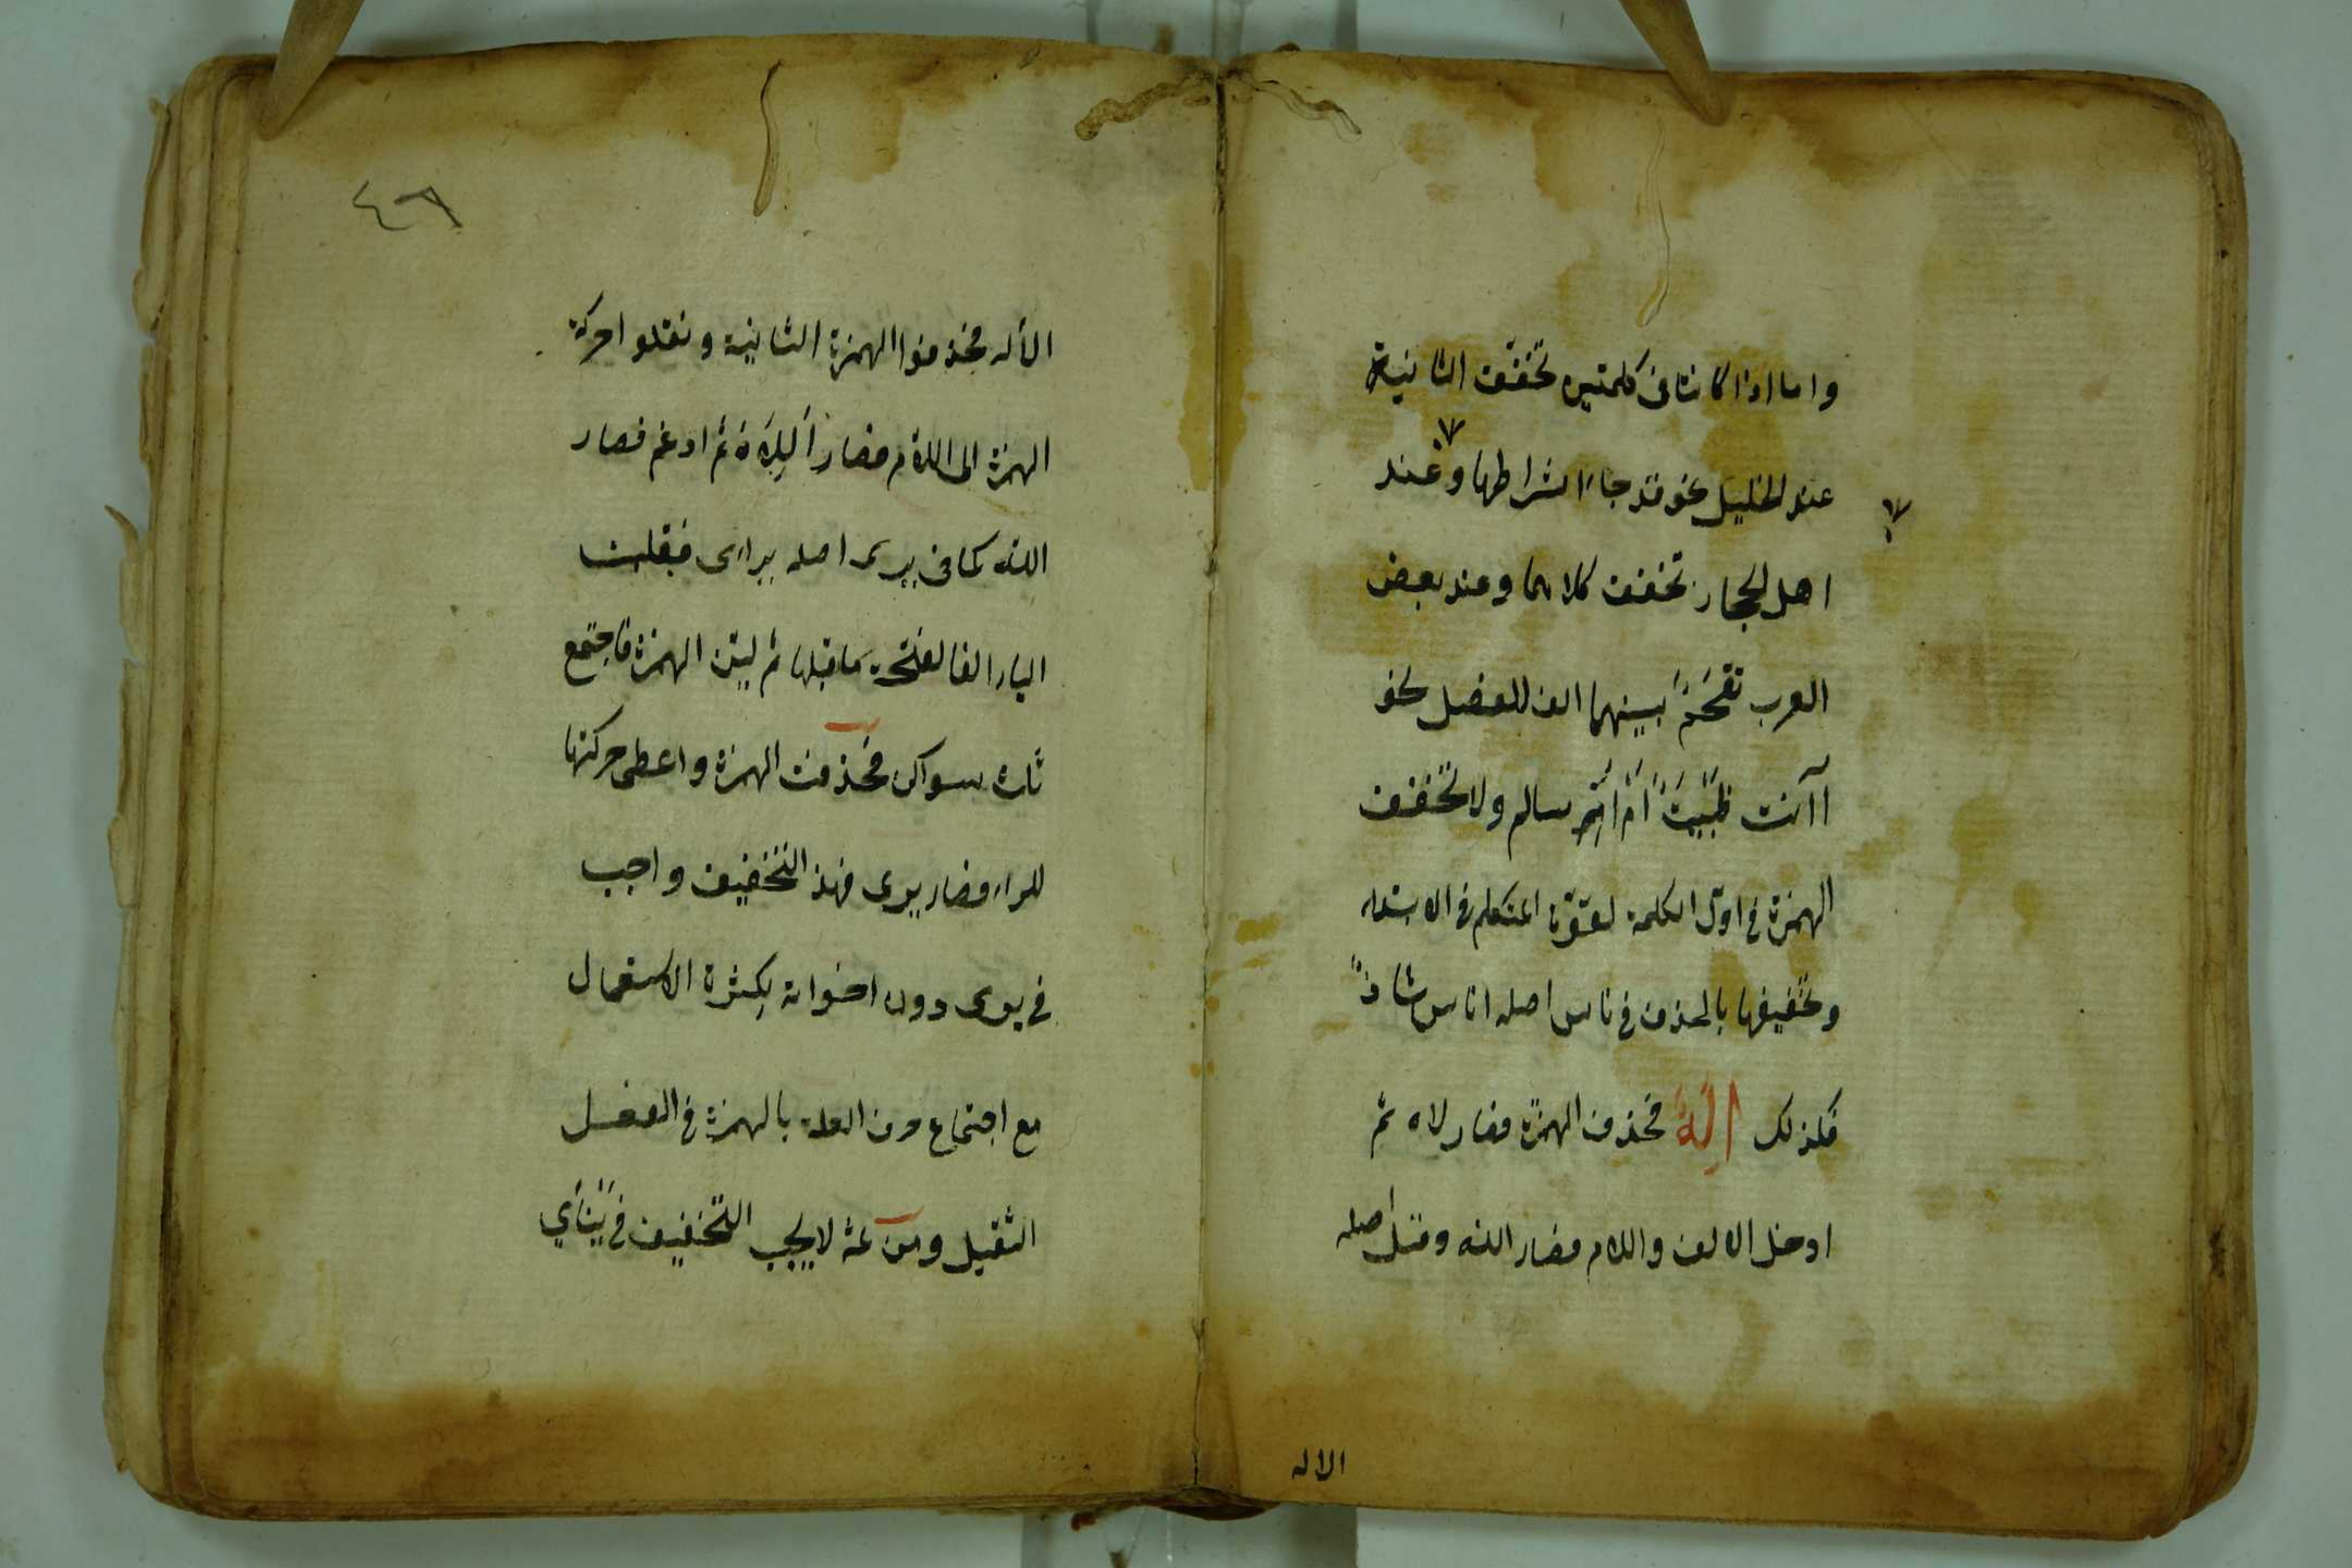 واما اذا كانتا فى كلمتين تخفف الثانية
عند الخليل نحو قد جاء اشراطها وعند
اهل الحجاز تخفف كلاهما وعند بعض
العرب تقحم بينهما الف للفصل نحو
اآنت ظبية ام ام سالم ولا تخفف
الهمزة فى اول الكلمة لقوة المتكلم فى الابتداء
وتخفيفها بالحذف فى ناس اصله اناس شاذ
فكذلك اله فحذف الهمزة فصار لاه ثم
ادخل الالف واللام فصار الله وقيل اصله
الاله
٤٦
الأله فحذفوا الهمزة الثانية ونقلوا حركة
الهمزة الى اللام فصار أللاه ثم ادغم فصار
الله كما فى يرى اصله يرأى فقلبت
الياء الفا لفتحة ما قبلها ثم لين الهمزة فاجتمع
ثلث سواكن فحذفت الهمزة واعطى حركتها
للراء فصار يرى فهذا التخفيف واجب
فى يرى دون اخواته لكثرة الاستعمال
مع اجتماع حرف العلة بالهمزة فى الفعل
الثقيل ومن ثمة لا يجب التخفيف فى ينأي